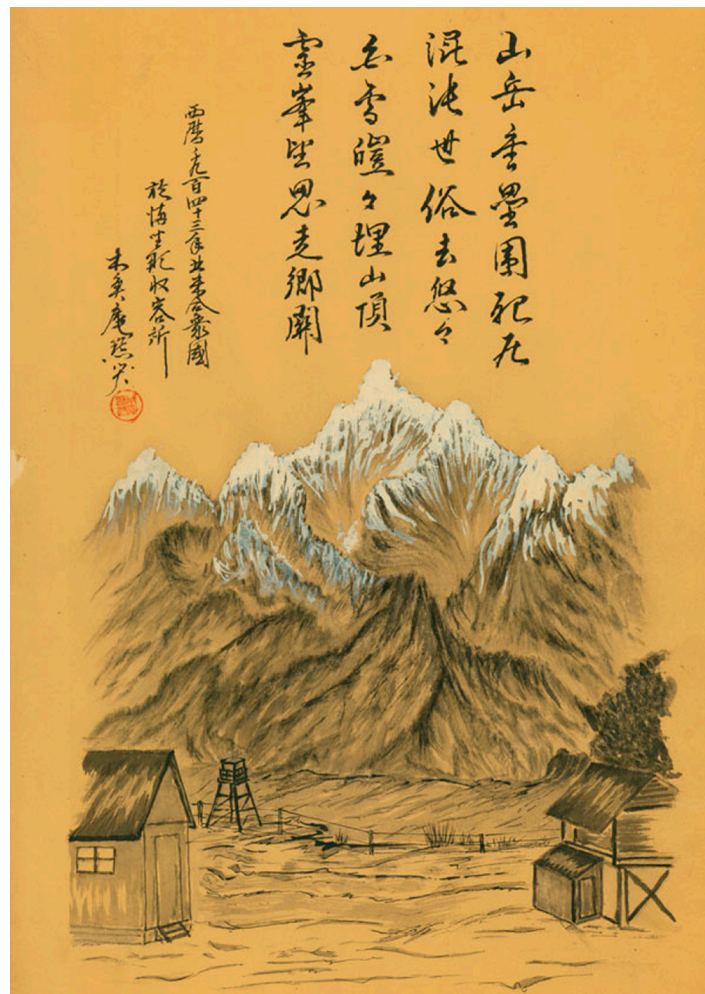 山岳重疊圍配
混沌世俗去悠々
白雪皚々埋山頂
靈峯望思走鄉關
西曆千九百四十三年北米合衆國
於 收容所
庵